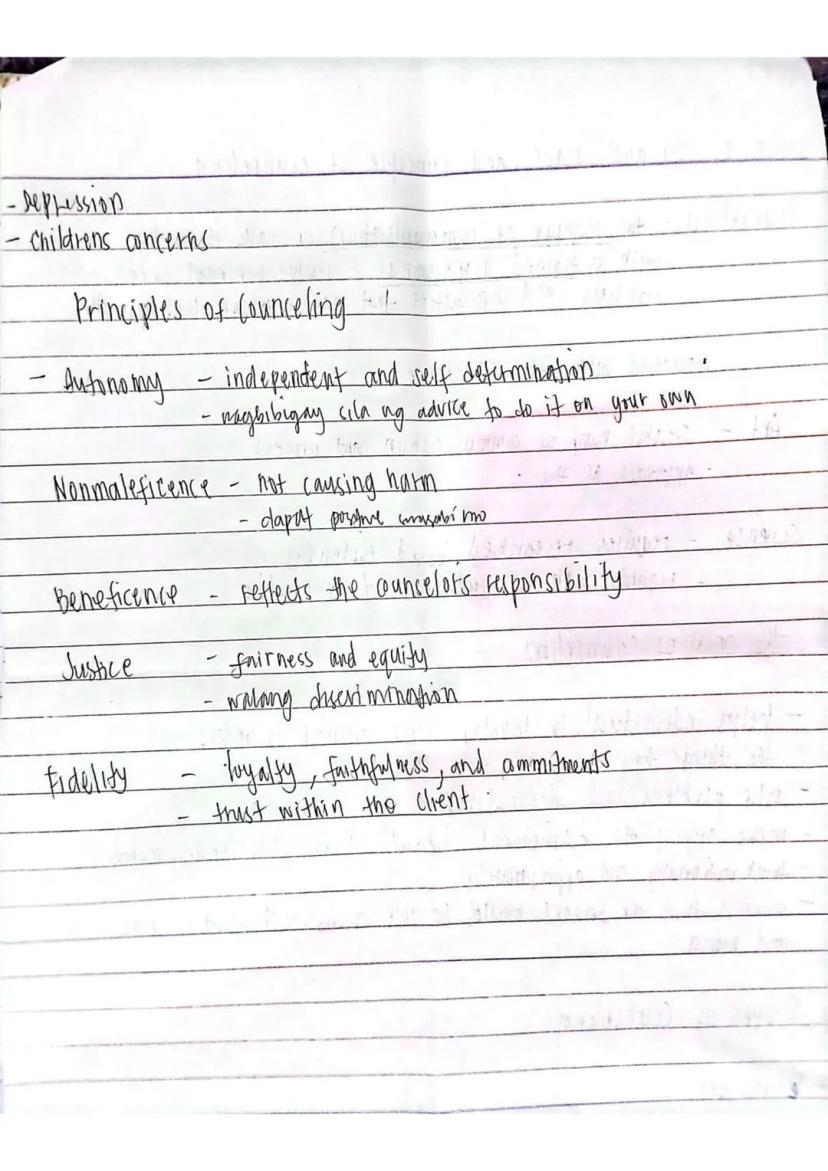 - Depression
- Childrens concerns
Principles of Counceling
- Autonomy - independent and self determination
- nagbibigay sila ng advice to do it on your own
Nonmaleficence - not causing harm
- dapat positive
Beneficence - reflects the counselor's responsibility
Justice - fairness and equity
- walang discrimination
Fidelity - loyalty, faithfulness, and commitments
- trust within the client